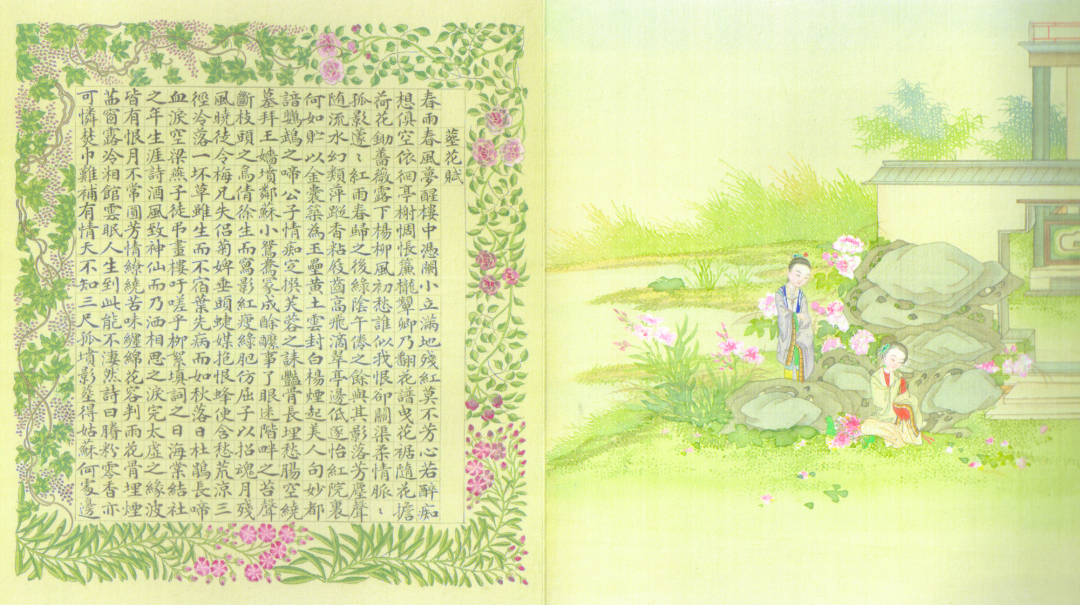 塟花賦
春雨春風夢醒樓中憑闌小立滿地殘紅莫不芳心若醉痴
想俱空依徊亭榭惆悵簾櫳顰卿乃翻花譜曳花裾隨花擔
荷花鋤薔薇露下楊柳風初愁誰似我恨卻關渠柔情脈〻
孤影蘧〻紅雨春歸之後綠陰午倦之餘與其影落芳塵聲
随流水幻類萍蹤香粘屐齒高飛滴翠亭邊低逐怡紅院裏
何如貯以金囊築為玉壘黃土雲封白楊煙起美人句妙都
諳鸚鵡之啼公子情痴定撰芙蓉之誄豔骨長埋愁腸空繞
墓拜王嬙墳鄰蘇小鴛鴦冢成酴醿事了眼迷階畔之苔聲
斷枝頭之鳥倩徐生而寫影紅瘦綠肥仿屈子以招魂月殘
風曉徒令梅兄失侣菊婢垂頭蜨媒抱恨蜂使含愁荒涼三
徑冷落一坏草雖生而不宿葉先病而如秋落日杜鵑長啼
血淚空梁燕子徒弔畫樓吁嗟乎柳絮填詞之日海棠結社
之年生涯詩酒風致神仙而乃洒相思之淚完太虛之緣波
皆有恨月不常圓芳情繚繞苦味纏綿花容判雨花骨埋煙
茜窗露冷湘館雲眠人生到此能不淒然詩曰賸粉零香亦
可憐焚巾難補有情天不知三尺孤墳影葬得姑蘇何處邊